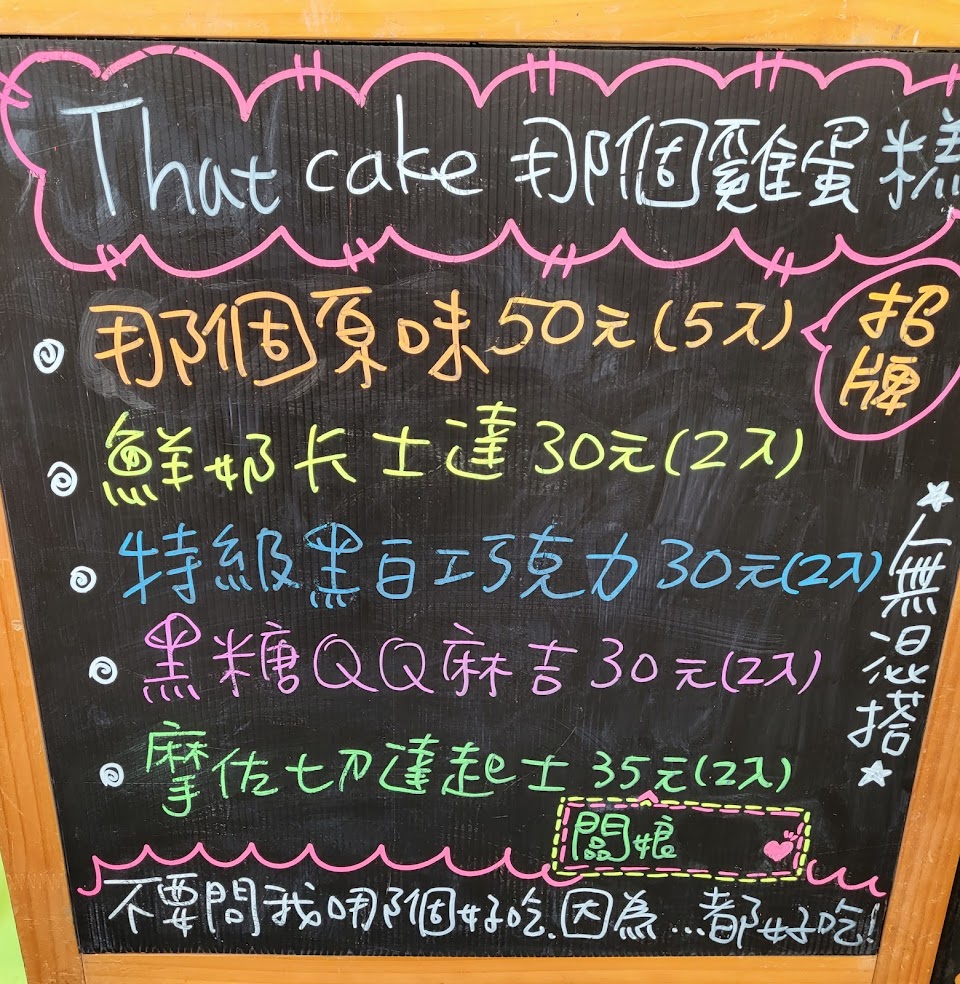 That cake 那個雞蛋糕
那個原味50元(5入)
招牌
鮮奶卡士達30元(2入)
特級黑白巧克力30元(2入)
黑糖QQ麻吉30元(2入)
摩佐切達起士35元(2入)
無混搭
闆娘
不要問我哪個好吃.因為...都好吃!